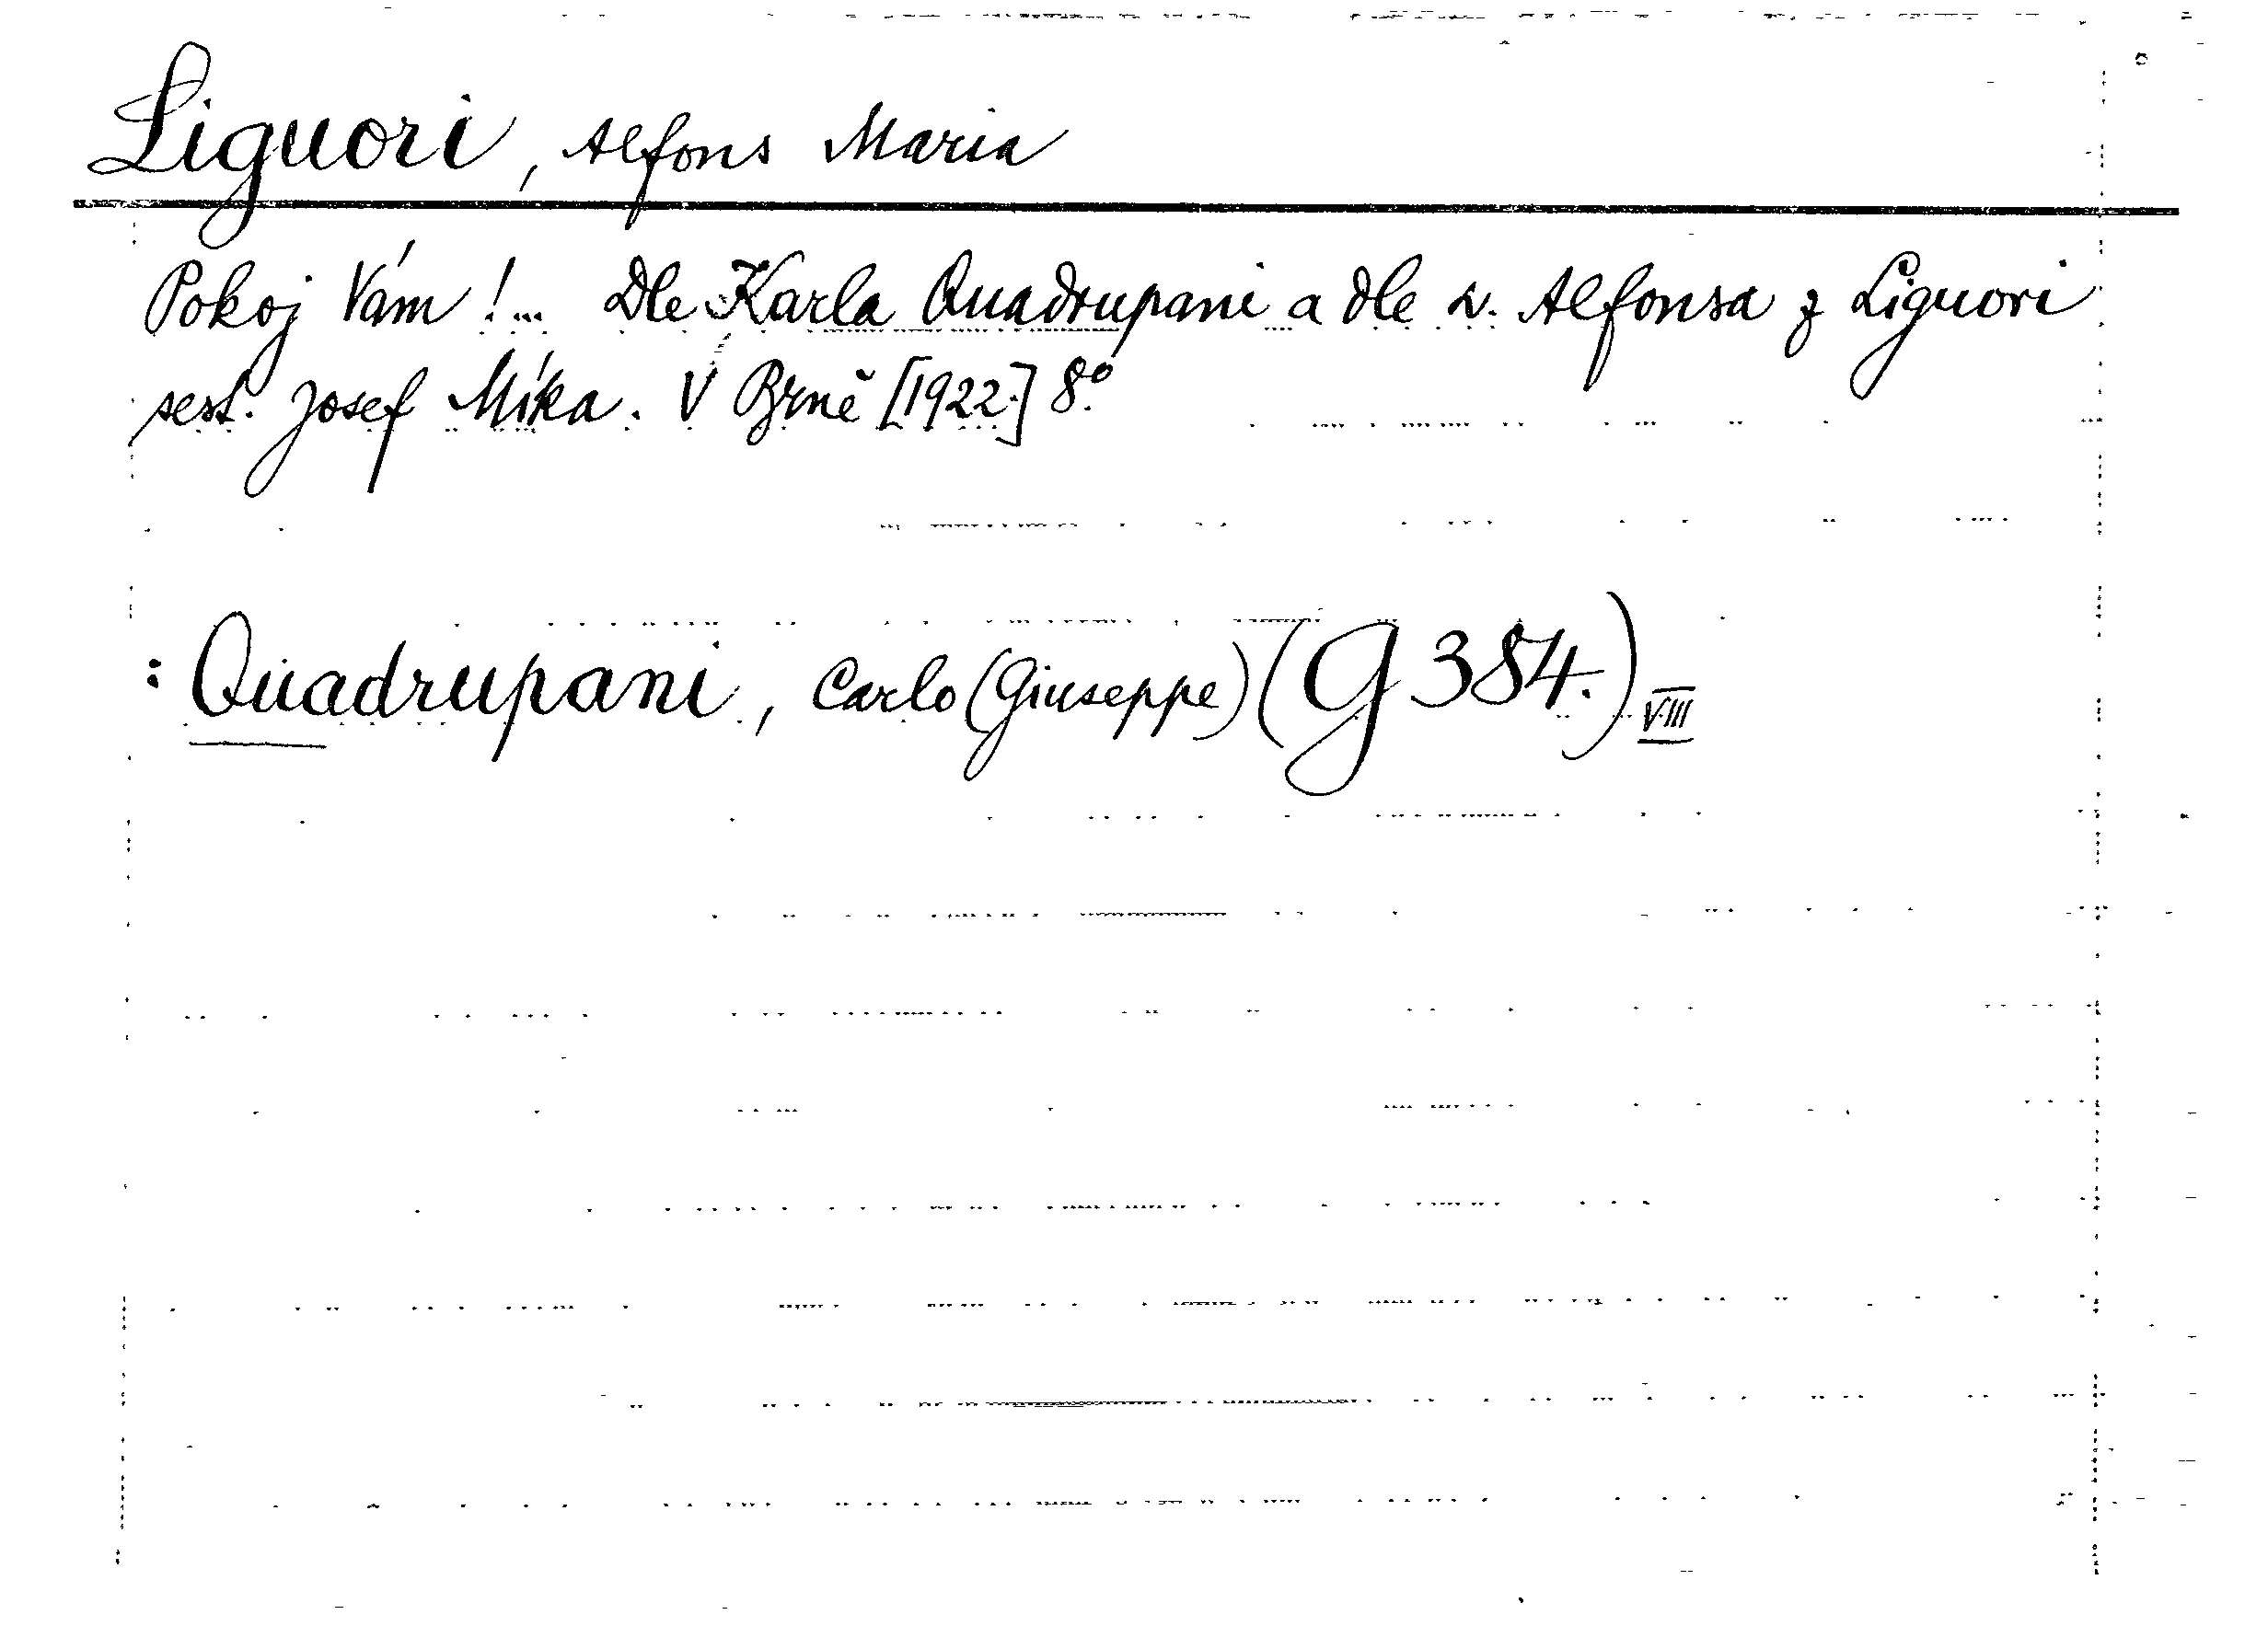 Liguori, Alfons Maria
Pokoj Vám!... Dle Karla Quadrupani a dle sv. Alfonsa z Liguori
sest. Josef Míka. V Brně [1922.] 8º.
: Quadrupani, Carlo (Giuseppe) (G 384.) VIII